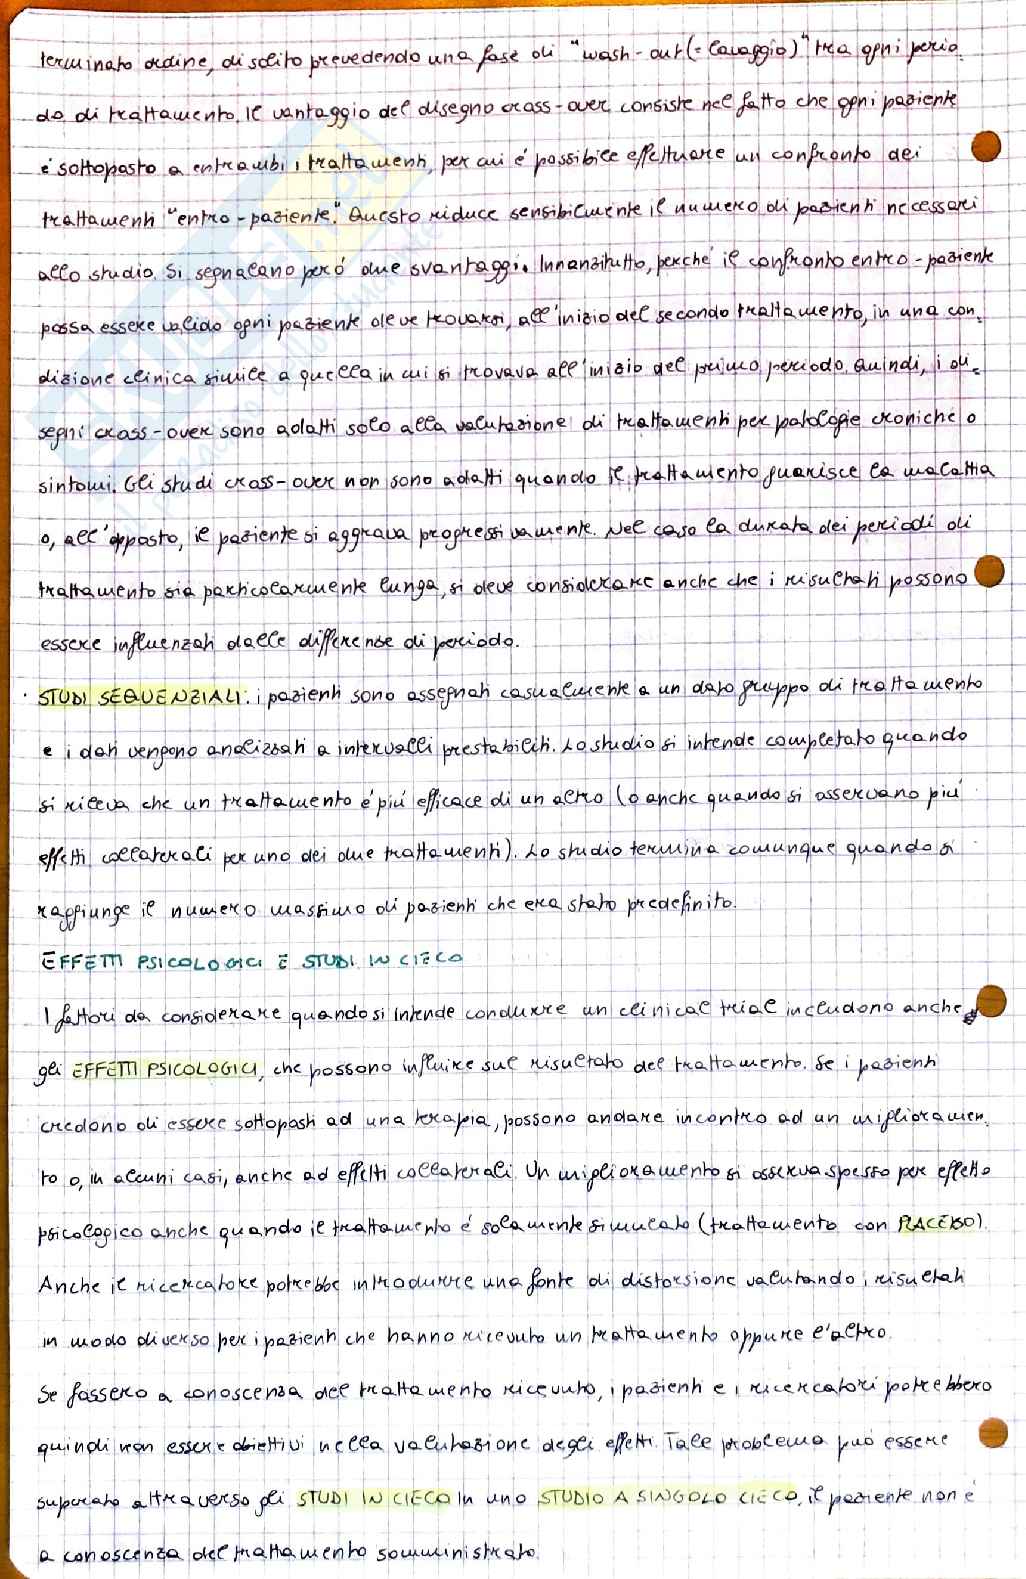 terminato ordine, di solito prevedendo una fase di "wash-out (= lavaggio)" tra ogni perio_
do di trattamento. Il vantaggio del disegno cross-over consiste nel fatto che ogni paziente
é sottoposto a entrambi i trattamenti, per cui é possibile effettuare un confronto dei
trattamenti "entro-paziente." Questo riduce sensibilmente il numero di pazienti necessari
allo studio. Si segnalano peró due svantaggi. Innanzitutto, perché il confronto entro-paziente
possa essere valido ogni paziente deve trovarsi, all'inizio del secondo trattamento, in una con_
dizione clinica simile a quella in cui si trovava all'inizio del primo periodo. Quindi, i di_
segni cross-over sono adatti solo alla valutazione di trattamenti per patologie croniche o
sintomi. Gli studi cross-over non sono adatti quando il trattamento guarisce la malattia
o, all'opposto, il paziente si aggrava progressivamente. Nel caso la durata dei periodi di
trattamento sia particolarmente lunga, si deve considerare anche che i risultati possono
essere influenzati dalle differenze di periodo.
· STUDI SEQUENZIALI: i pazienti sono assegnati casualmente a un dato gruppo di trattamento
e i dati vengono analizzati a intervalli prestabiliti. Lo studio si intende completato quando
si rileva che un trattamento é piú efficace di un altro (o anche quando si osservano piú
effetti collaterali per uno dei due trattamenti). Lo studio termina comunque quando si
raggiunge il numero massimo di pazienti che era stato predefinito.
EFFETTI PSICOLOGICI E STUDI IN CIECO
I fattori da considerare quando si intende condurre un clinical trial includono anche
gli EFFETTI PSICOLOGICI, che possono influire sul risultato del trattamento. Se i pazienti
credono di essere sottoposti ad una terapia, possono andare incontro ad un miglioramen_
to o, in alcuni casi, anche ad effetti collaterali. Un miglioramento si osserva spesso per effetto
psicologico anche quando il trattamento é solamente simulato (trattamento con PLACEBO).
Anche il ricercatore potrebbe introdurre una fonte di distorsione valutando i risultati
in modo diverso per i pazienti che hanno ricevuto un trattamento oppure l'altro.
Se fossero a conoscenza del trattamento ricevuto, i pazienti e i ricercatori potrebbero
quindi non essere obiettivi nella valutazione degli effetti. Tale problema può essere
superato attraverso gli STUDI IN CIECO. In uno STUDIO A SINGOLO CIECO, il paziente non é
a conoscenza del trattamento somministrato.